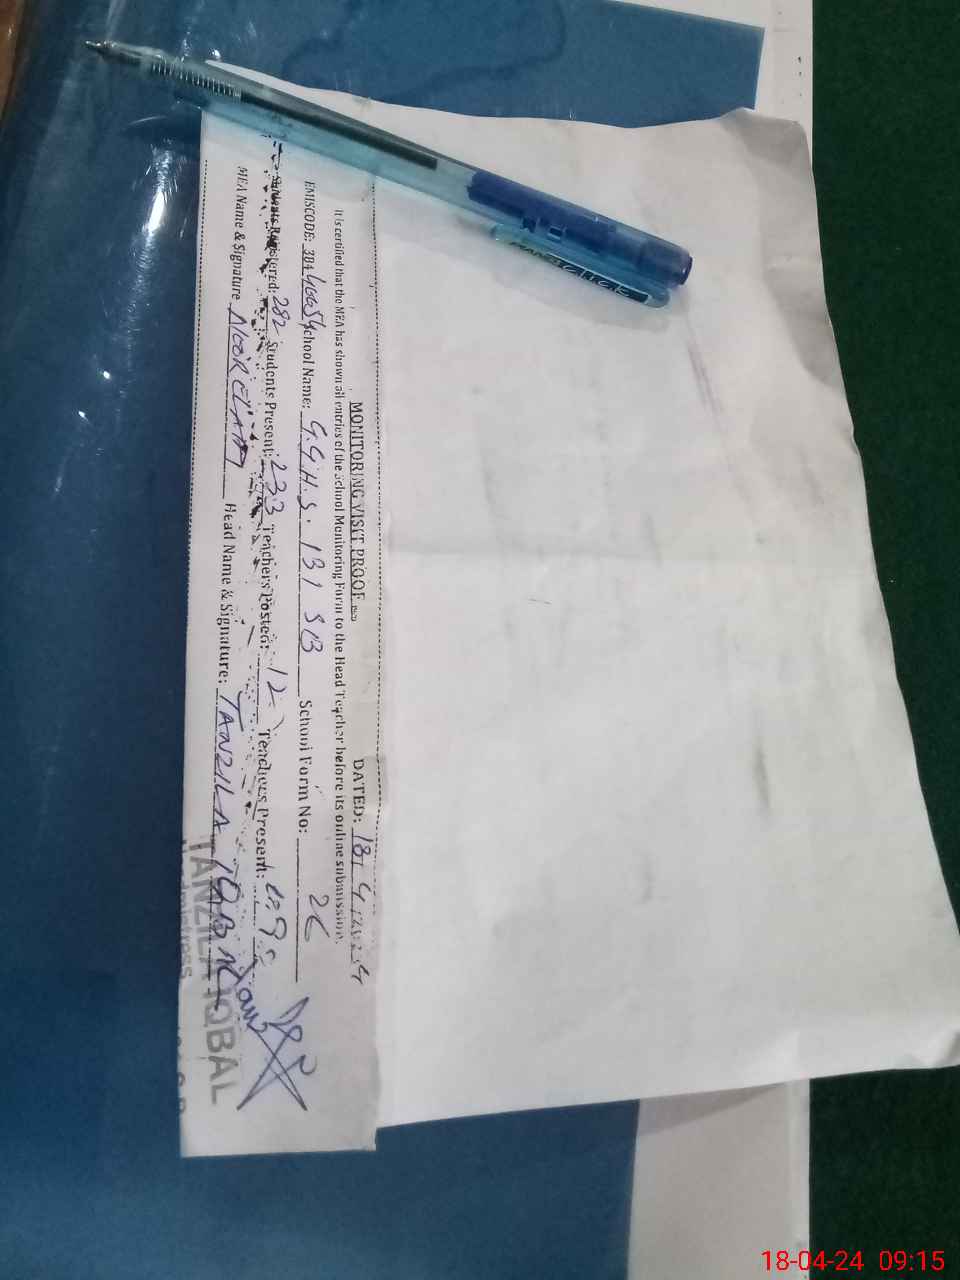 MONITORING VISIT PROOF DATED: 18/4/2024
It is certified that the MEA has shown all entries of the School Monitoring Form to the Head Teacher before its online submission.
EMISCODE: School Name: G.G.H.S. 131 SB School Form No:
Students Registered: 282 Students Present: 233 Teachers Posted: 12 Teachers Present: 09
MEA Name & Signature NOOR ELAHI Head Name & Signature: TANZILA IQBAL
TANZILA IQBAL
18-04-24 09:15